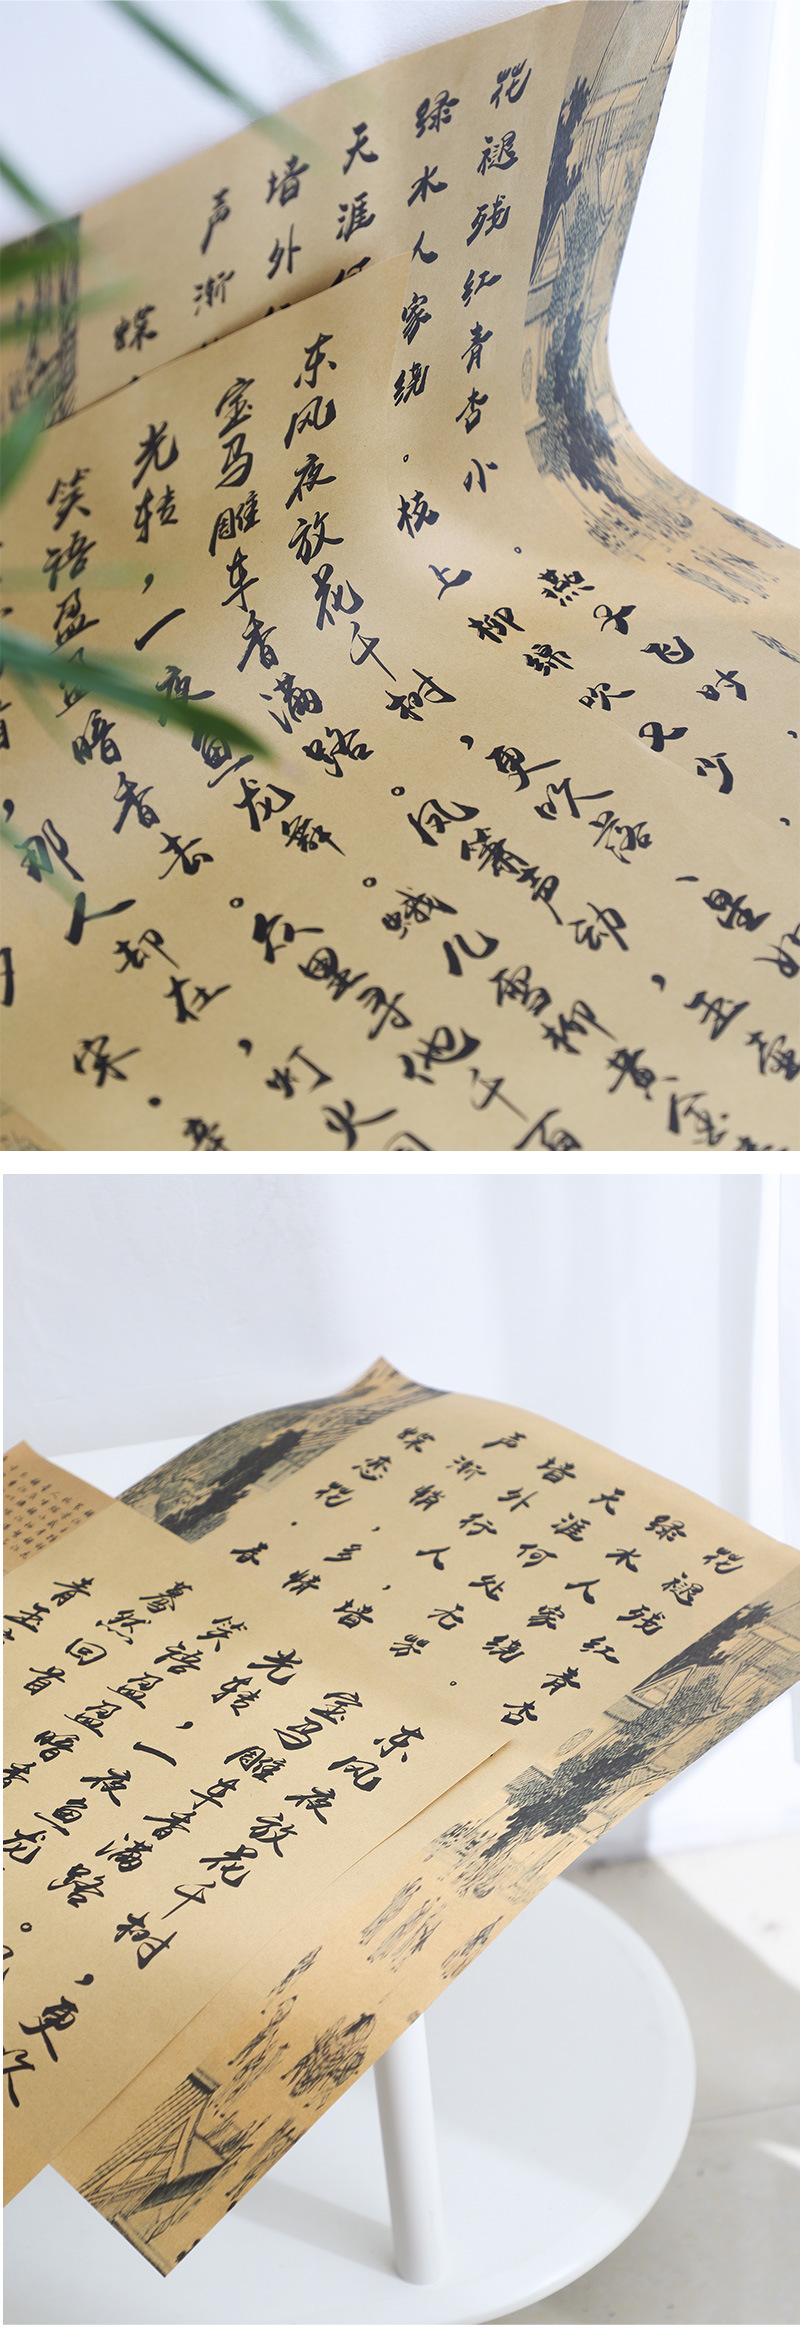 花褪残红青杏小。燕子飞时,
绿水人家绕。枝上柳绵吹又少,
天涯
墙外
声渐
蝶
东风夜放花千树,更吹落、星如
宝马雕车香满路。凤箫声动,玉壶
光转,一夜鱼龙舞。蛾儿雪柳黄金
笑语盈盈暗香去。众里寻他千百
首,那人却在,灯火
宋。辛
花褪残红青杏
绿水人家绕
天涯何处无芳。
墙外行人,墙
声渐悄,多情
蝶恋花·春
东风夜放花千树,更吹
宝马雕车香满路。
光转,一夜鱼龙
笑语盈盈暗香
蓦然回首
青玉